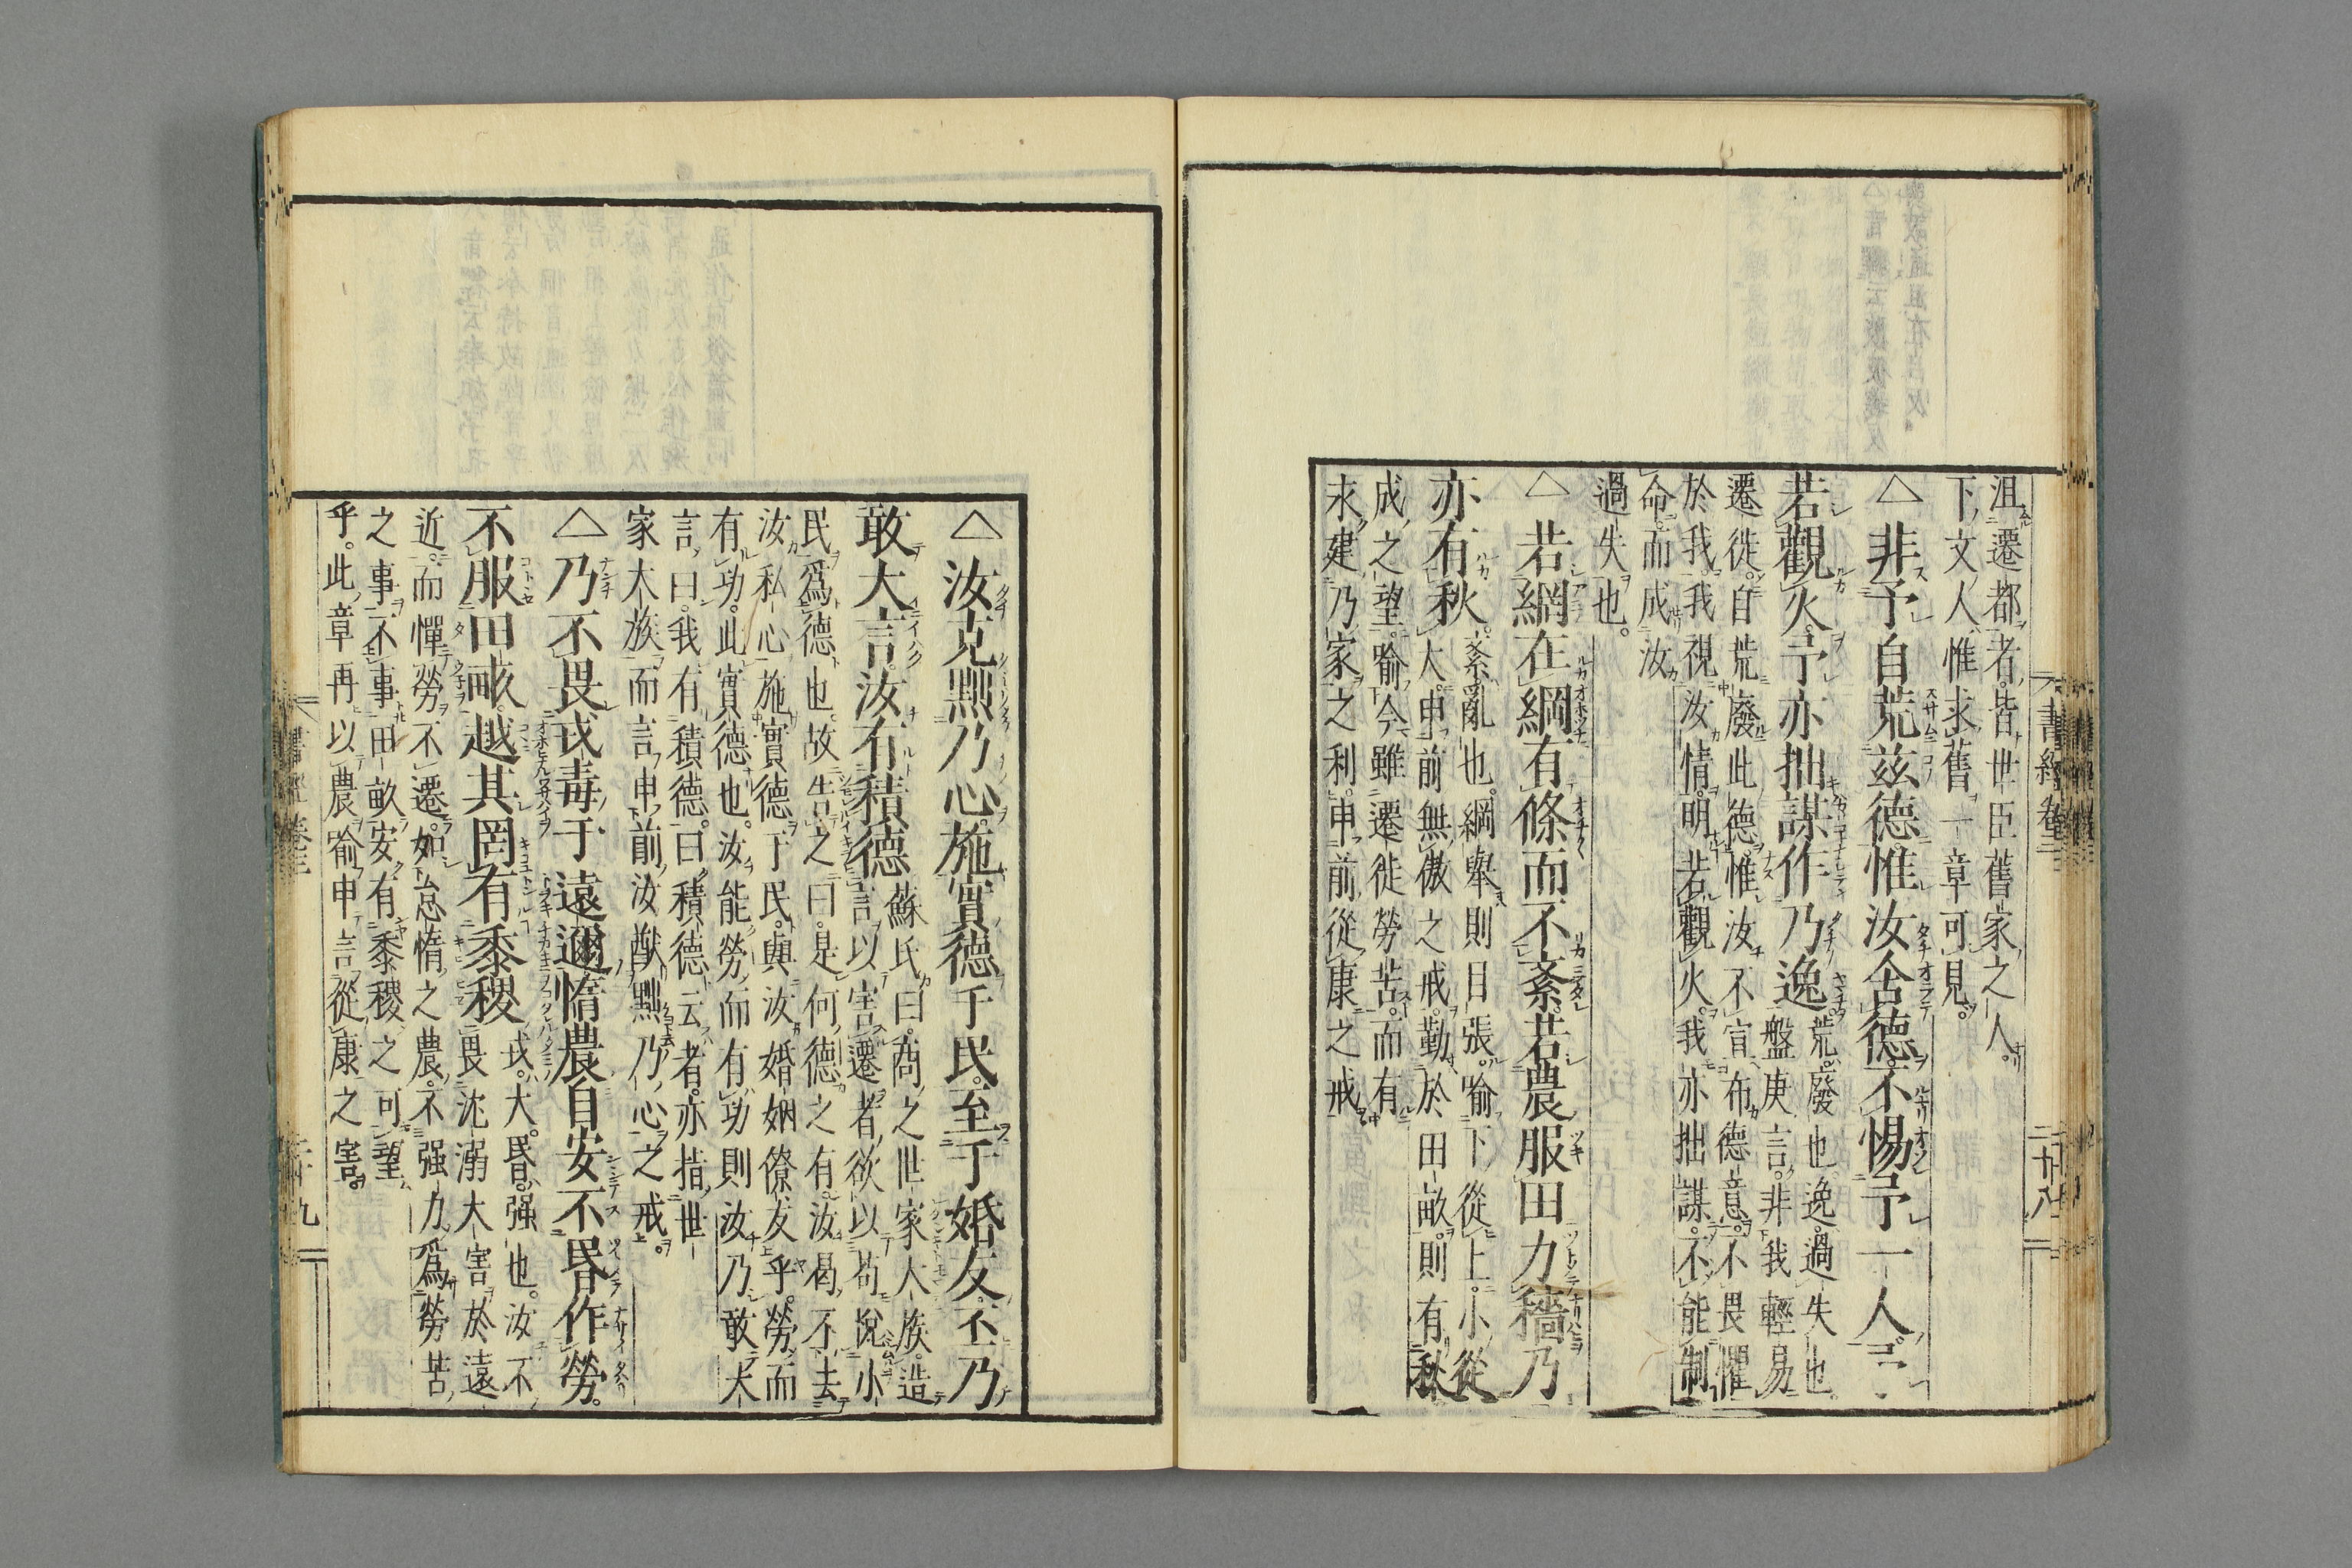 書經卷三
二十八
沮遷都者皆世臣舊家之人
下文人惟求舊一章可見
△非予自荒兹德惟汝含德不惕予一人予
若觀火予亦拙謀作乃逸荒廢也逸過失也
盤庚言非我輕易
遷徙自荒廢此德惟汝不宣布德意不畏懼
於我我視汝情明若觀火我亦拙謀不能制
命而成汝
過失也
△若網在綱有條而不紊若農服田力穡乃
亦有秋紊亂也綱舉則目張喻下從上小從
大申前無傲之戒勤於田畝則有秋
成之望喻今雖遷徙勞苦而有
永建乃家之利申前從康之戒
△汝克黜乃心施實德于民至于婚友丕乃
敢大言汝有積德蘇氏曰商之世家大族造
言以害遷者欲以苟悅小
民爲德也故告之曰是何德之有汝曷不去
汝私心施實德于民與汝婚姻僚友乎勞而
有功此實德也汝能勞而有功則汝乃敢大
言曰我有積德曰積德云者亦指世
家大族而言申前汝猷黜乃心之戒
△乃不畏戎毒于遠邇惰農自安不昬作勞
不服田畝越其罔有黍稷戎大昬强也汝不
畏沈溺大害於遠
近而憚勞不遷如怠惰之農不强力爲勞苦
之事不事田畝安有黍稷之可望
乎此章再以農喻申言從康之害